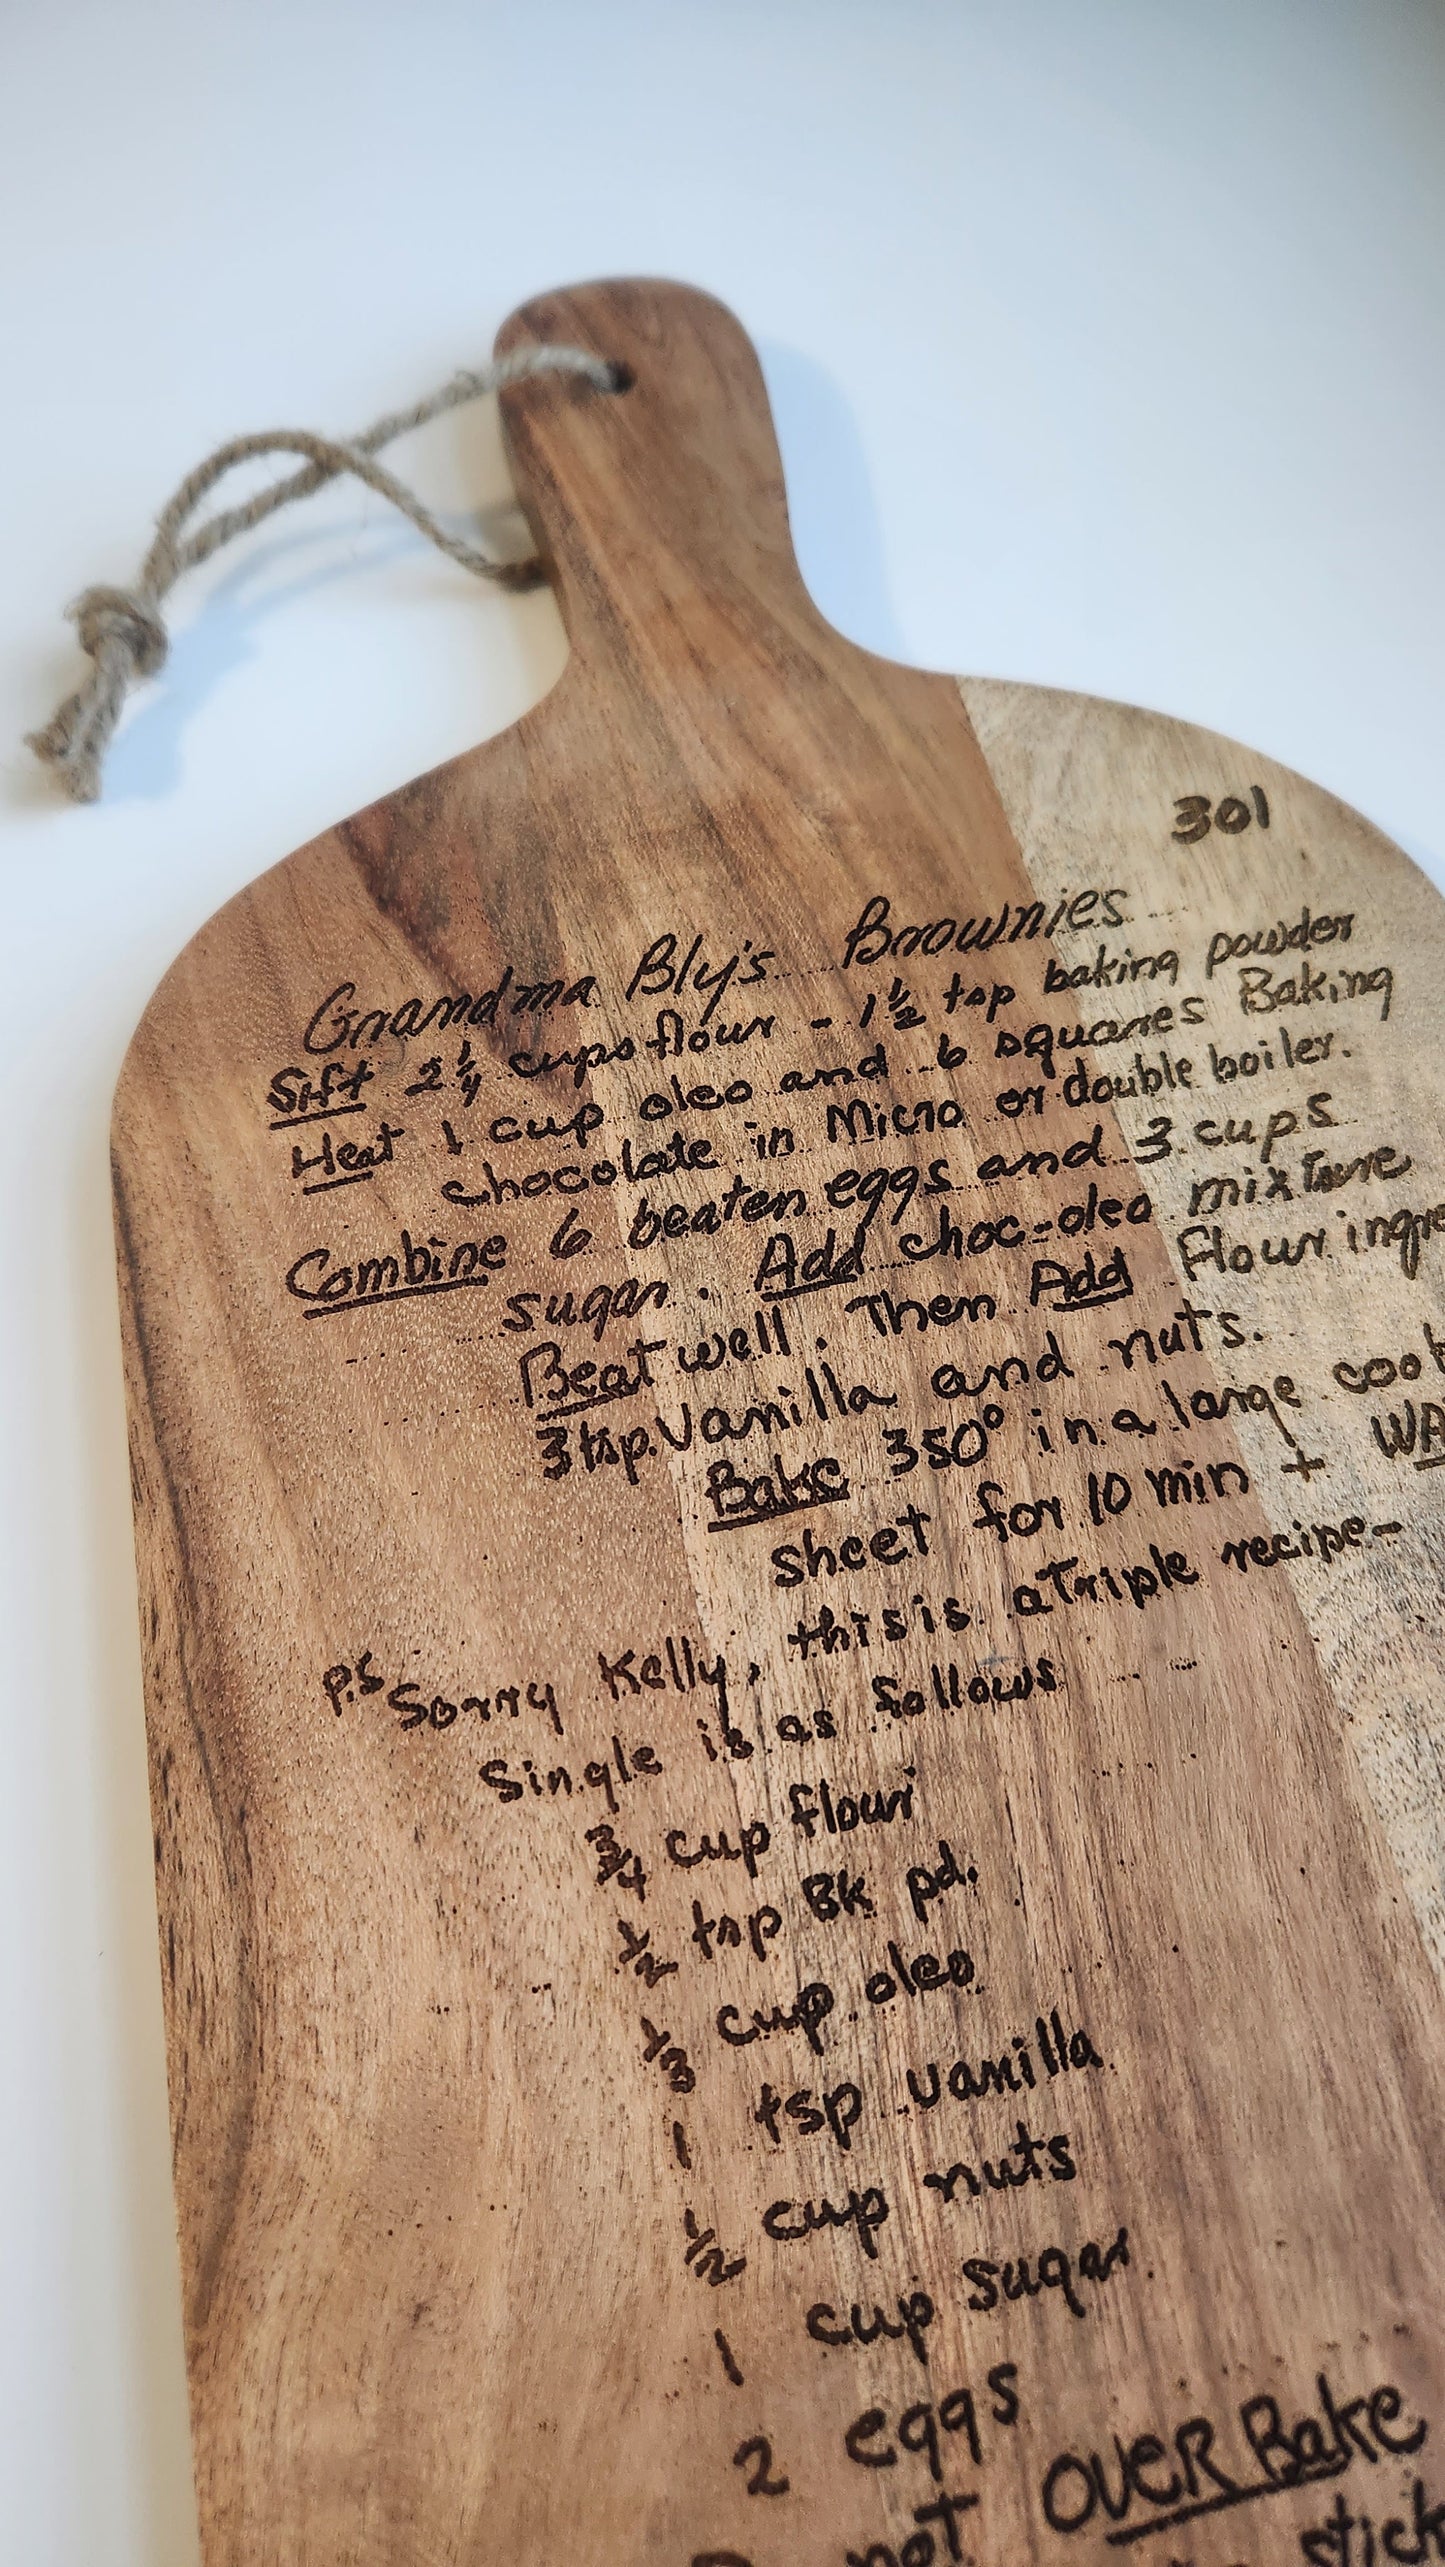 301
Grandma Bly's Brownies
Sift 2 1/4 cups flour - 1 1/2 tsp baking powder
Heat 1 cup oleo and 6 squares Baking
chocolate in Micro or double boiler.
Combine 6 beaten eggs and 3 cups
sugar. Add choc-oleo mixture
Beat well. Then Add flour ingre
3 tsp. Vanilla and nuts.
Bake 350° in a large cook
sheet for 10 min + WA
P.S Sorry Kelly, this is a Triple recipe-
Single is as follows
3/4 cup flour
1/2 tsp BK pd.
1/3 cup oleo
1 tsp vanilla
1/2 cup nuts
1 cup sugar
2 eggs
not OVER Bake
stick